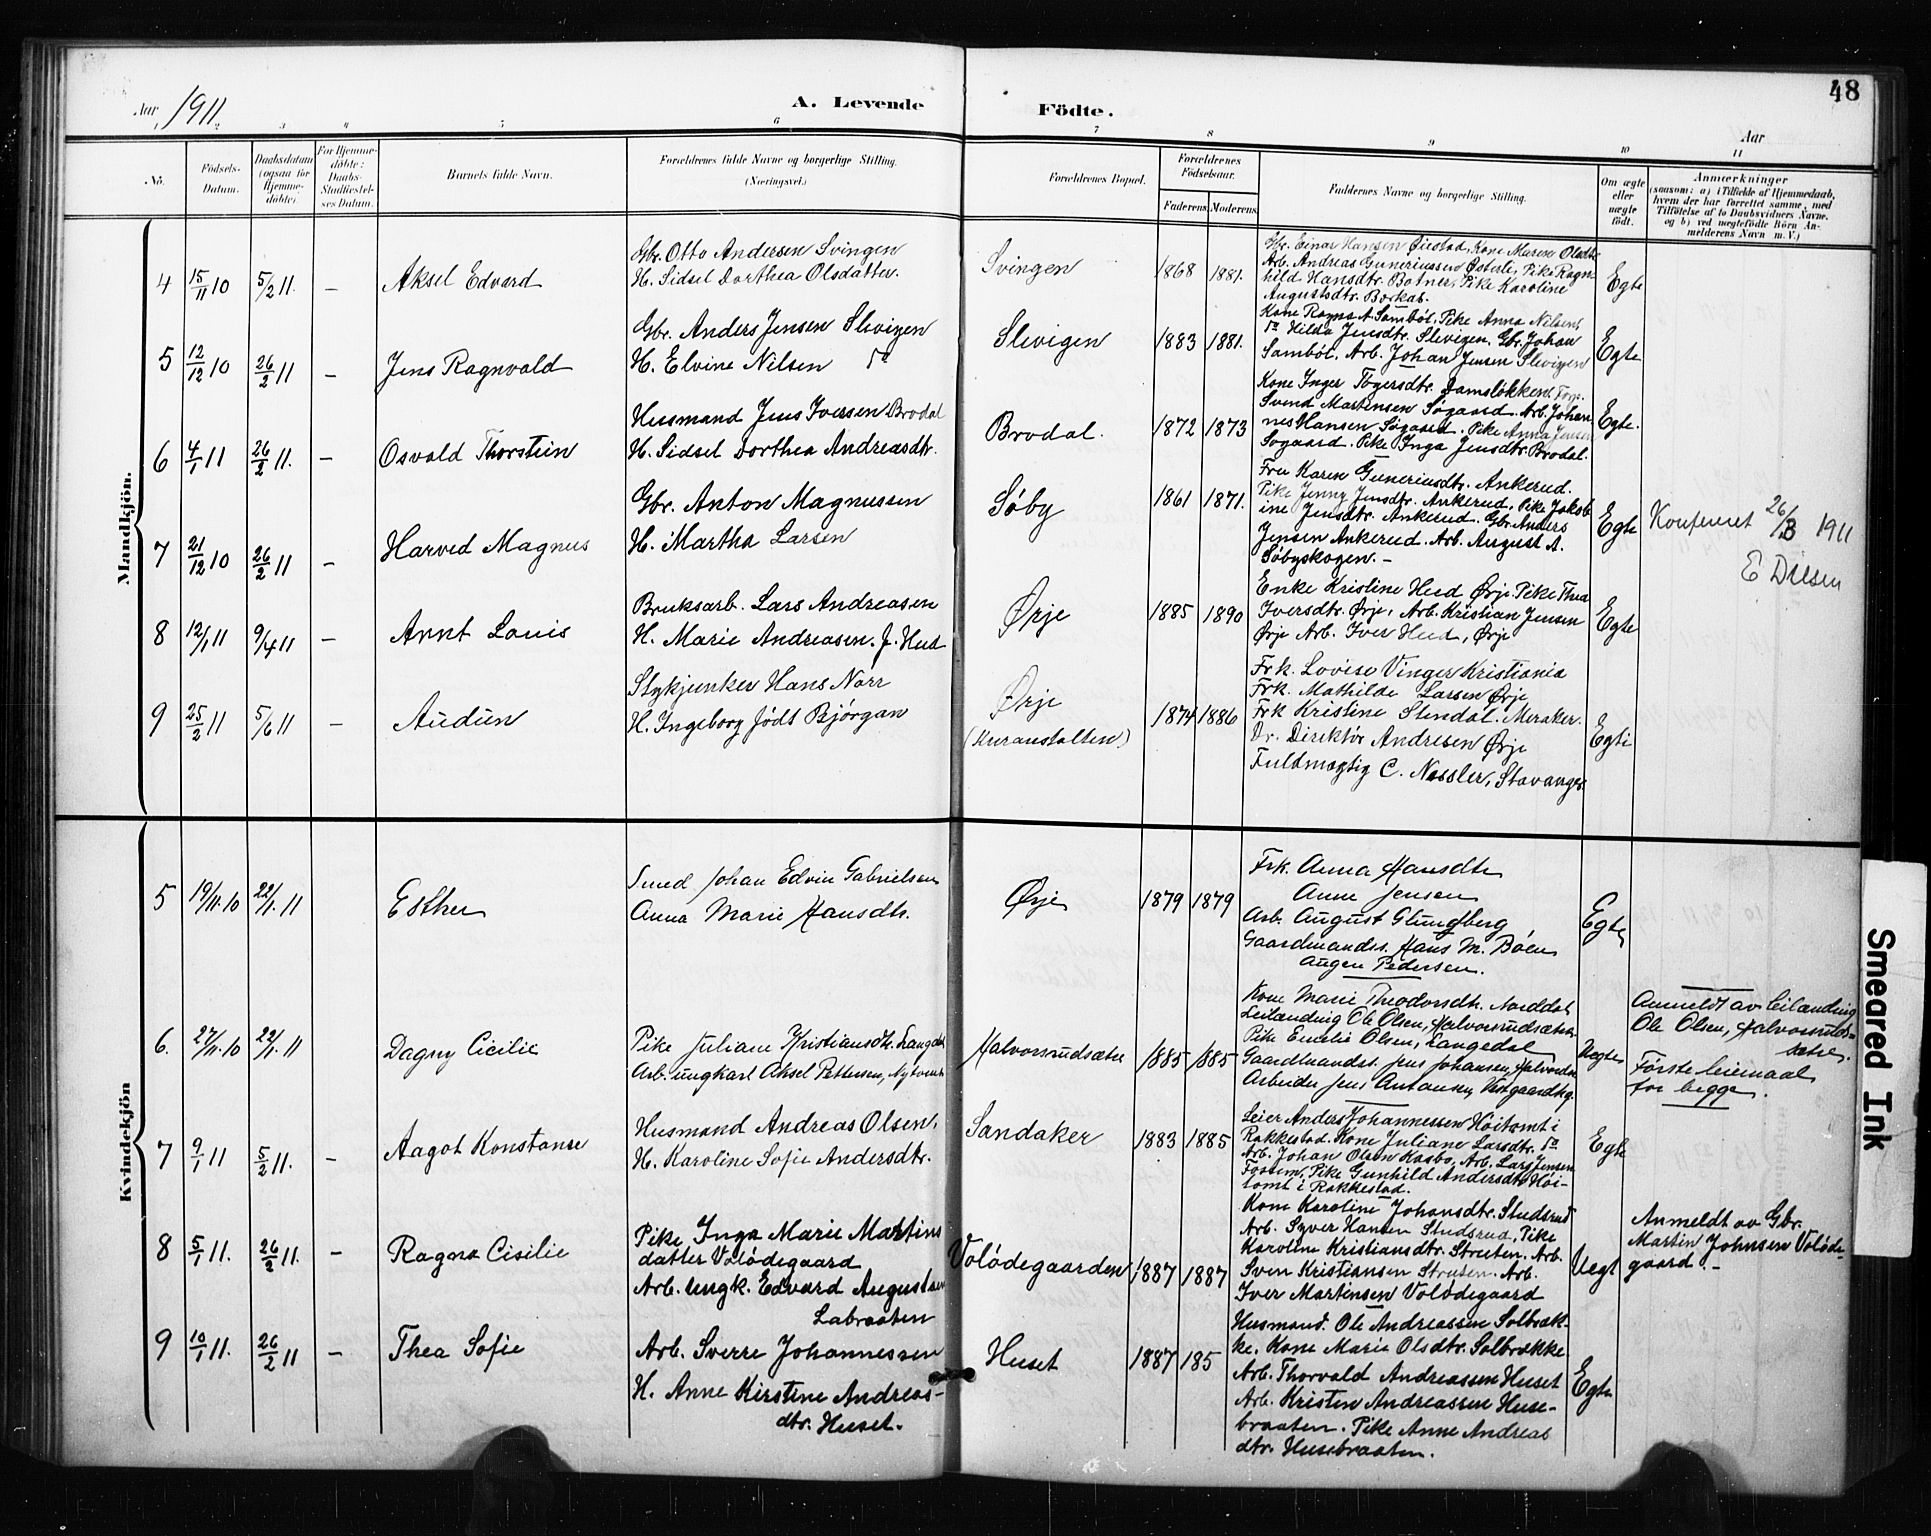 48
Aar 1911
A. Levende
Födte.
Aar
1 2 3 4 5 6 7 8 9 10 11
No.
Födsels-
Datum.
Daabsdatum
(ogsaa for
Hjemme-
döbte)
For Hjemme-
döbte:
Daabs-
Stadfæstel-
ses Datum.
Barnets fulde Navn.
Forældrenes fulde Navne og borgerlige Stilling.
(Næringsvei.)
Forældrenes Bopæl.
Forældrenes
Födselsaar.
Faderens. Moderens.
Faddernes Navne og borgerlige Stilling.
Om ægte
eller
uægte
födt.
Anmærkninger
(saasom: a) i Tilfælde af Hjemmedaab,
hvem der har forrettet samme, med
Tilföielse af to Daabsvidners Navne.
og b) ved uægtefödte Börn An-
melderens Navn m.V.)
Mandkjön.
4 15/11 10 5/2 11. – Aksel Edvard
Gbr. Otto Andersen Svingen
H. Sidsel Dorthea Olsdatter.
Svingen 1868 1881.
Gbr. Einar Hansen Øiestad, Kone Maren Olsdtr
Arb. Andreas Guneriussen Østerle, Pike Ragn-
hild Hansdtr. Botner, Pike Karoline
Augustsdtr. Borkab.
Egte
5 12/12 10 26/2 11 – Jens Ragnvald
Gbr. Anders Jensen Slevigen
H. Elvine Nilsen do
Slevigen 1883 1881.
Kone Ragna A. Sambøl. Pike Anna Nilsen,
do Hilda Jensdtr. Slevigen. Gbr. Johan
Sambøl, Arb. Johan Jensen Slevigen
Egte
6 4/1 11 26/2 11. – Osvald Thorstein
Husmand Jens Iversen Brodal
H. Sidsel Dorthea Andreasdtr.
Brodal. 1872 1873
Kone Inger Tøgersdtr. Damsløkken. Forp.
Svend Martinsen Søgaard. Arb. Johan-
nes Hansen Søgaard. Pike Anna Jensen
Søgaard. Pike Inga Jensdtr. Brodal.
Egte.
7 21/12 10 26/2 11 – Harved Magnus
Gbr. Anton Magnussen
H. Martha Larsen
Søby 1861 1871.
Fru Karen Guneriusdtr. Ankerud.
Pike Jenny Jensdtr. Ankerud, Pike Jakob-
ine Jensdtr. Ankerud. Gbr. Anders
Jensen Ankerud. Arb. August A.
Søbyskogen. –
Egte
Konfereret 26/3 1911
E Dilsen
8 12/1 11 9/4 11 – Arnt Louis
Bruksarb. Lars Andreasen
H. Marie Andreasen. f. Hud
Ørje 1885 1890
Enke Kristine Hud Ørje. Pike Thea
Iversdtr. Ørje, Arb. Kristian Jensen
Ørje Arb. Iver Hud, Ørje
Egte
9 25/2 11 5/6 11 – Audun
Stykjunker Hans Norr
H. Ingeborg født Bjørgan
Ørje
(Kuranstalten)
1874 1886
Frk. Lovise Vinger Kristiania
Frk. Mathilde Larsen Ørje
Frk Kristine Stendal. Meraker.
Dr. Direktør Andresen Ørje
Fuldmægtig C. Nessler, Stavanger.
Egte
Kvindekjön
5 19/11. 10 22/1. 11 Esther
Smed Johan Edvin Gabrielsen
Anna Marie Hansdtr.
Ørje 1879 1879
Frk. Anna Hansdtr
Anne Jensen
Arb. August Glundberg
Gaardmandss. Hans M. Bøen
Augen Pedersen.
Egte
6. 27/11. 10 22/1. 11 Dagny Cicilie
Pike Juliane Kristiansdtr. Langedal
Arb. ungkarl Aksel Pettersen, Nytveit
Halvorsrudsætre 1885 1885
Kone Marie Theodorsdtr. Norddal
Leilænding Ole Olsen, Halvorsrudsætre
Pike Emelie Olsen, Langedal
Gaardmandss. Jens Johansen, Halvorsrud
Arbeider Jens Antonsen, Vestgaardhg.
Uegte
Anmeldt av leilænding
Ole Olsen, Halvorsruds-
sætre.
Første leiemaal
for begge.
7 9/1 11 5/2 11. – Aagot Konstanse
Husmand Andreas Olsen,
H. Karoline Sofie Andersdtr.
Sandaker 1883 1885
Leier Anders Johannessen Høitomt i
Rakkestad. Kone Juliane Larsdtr. do
Arb. Johan Olsen Kasbo, Arb. Lars Jensen
Fossum, Pike Gunhild Andersdtr. Høi-
tomt i Rakkestad.
Egte
8 5/1 11. 26/2 11. – Ragna Cisilie
Pike Inga Marie Martins
datter Volødegaard
Arb. ungk. Edvard Augustsen
Labraaten
Volødegaarden 1887 1887
Kone Karoline Johansdtr. Studsrud
Arb. Syver Hansen Studsrud, Pike
Karoline Kristiansdtr. Struten. Arb.
Sven Kristiansen Strusen. Arb.
Iver Martinsen Volødegaard
Uegt
Anmeldt av Gbr.
Martin Johnsen Voløde-
gaard. –
9 10/1 11. 26/2 11 – Thea Sofie
Arb. Sverre Johannessen
H. Anne Kirstine Andreas-
dtr. Huset.
Huset 1887 185
Husmand. Ole Andreassen Solbræk-
ke. Kone Marie Olsdtr. Solbrække
Arb. Thorvald Andreassen Huset
Arb. Kristen Andreassen Huse-
braaten. Pike Anne Andreas
dtr. Husebraaten.
Egte
Smeared Ink